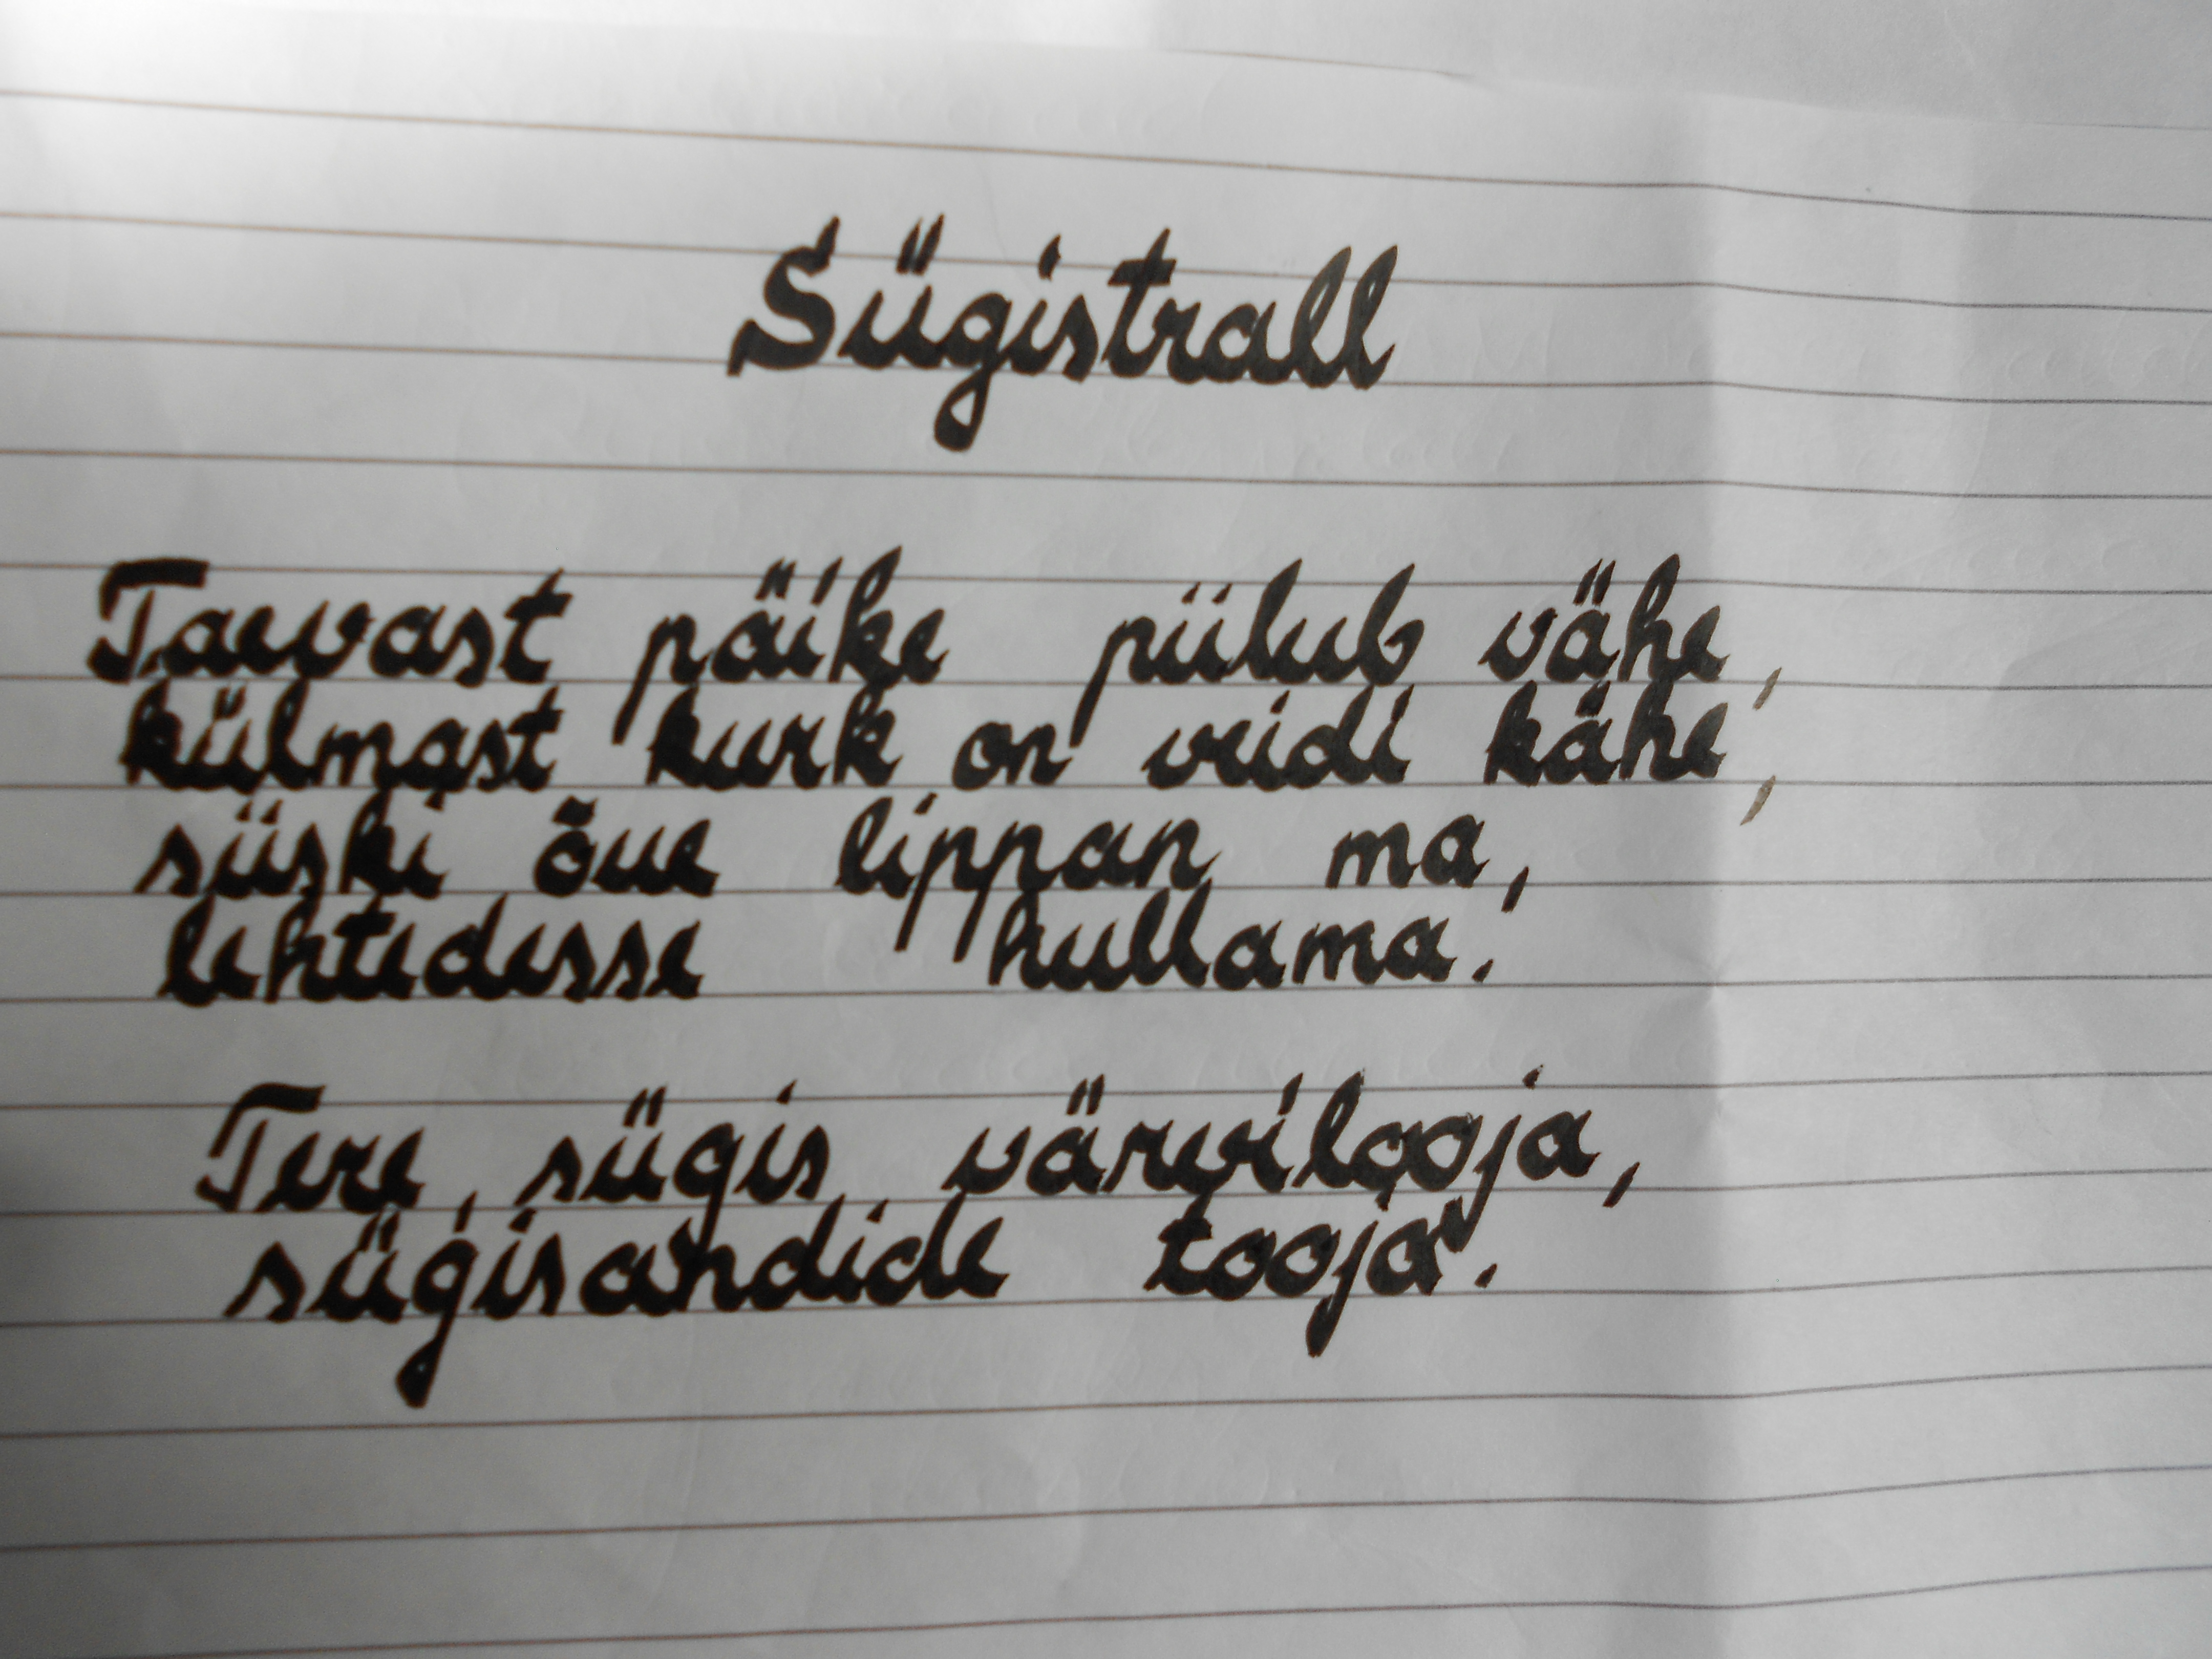 Sügistrall
Taevast päike piilub vähe,
külmast kurk on veidi kähe,
siiski õue lippan ma,
lehtedesse hullama.
Tere, sügis, värvilooja,
sügisandide tooja.